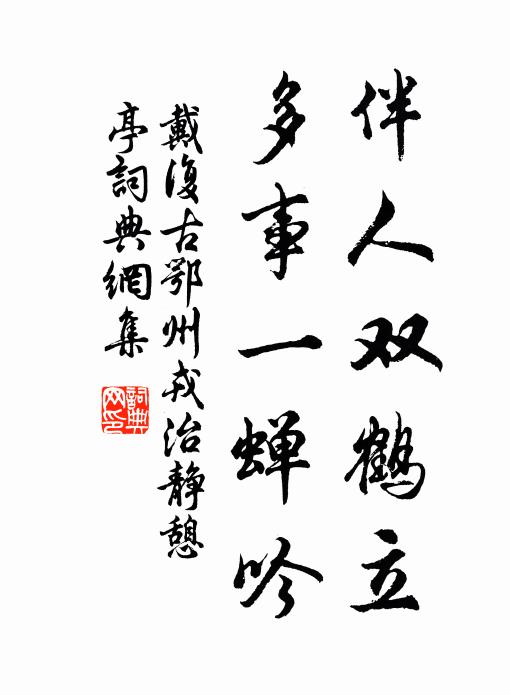 伴人双鹤立
多事一蝉吟
戴復古鄂州戎治静憩
亭詞典網集
詞典網印